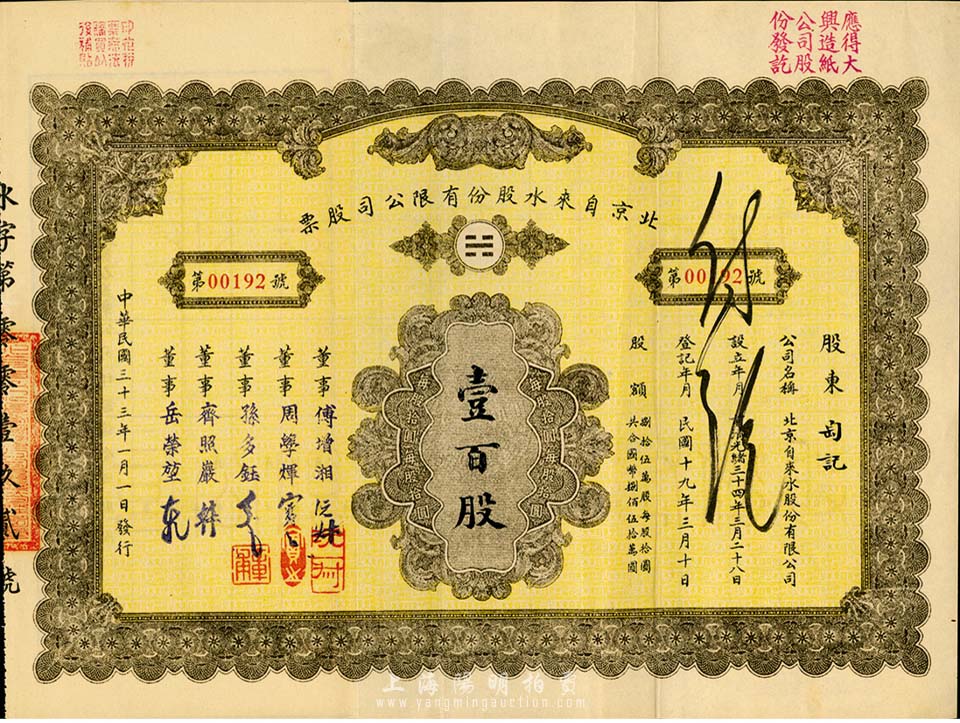 應得大
興造紙
公司股
份發訖
北京自來水股份有限公司股票
第00192號
第00192號
股東
記
公司名稱 北京自來水股份有限公司
設立年月 光緒三十四年三月二十八日
登記年月 民國十九年三月十日
股額 捌拾伍萬股每股拾圓
共合國幣捌佰伍拾萬圓
壹百股
董事 傅增湘
董事 周學煇
董事 孫多鈺
董事 齊照巖
董事 岳榮堃
中華民國三十三年一月一日發行
水字第零零壹玖貳號
上海陽明拍賣
www.yangmingauction.com